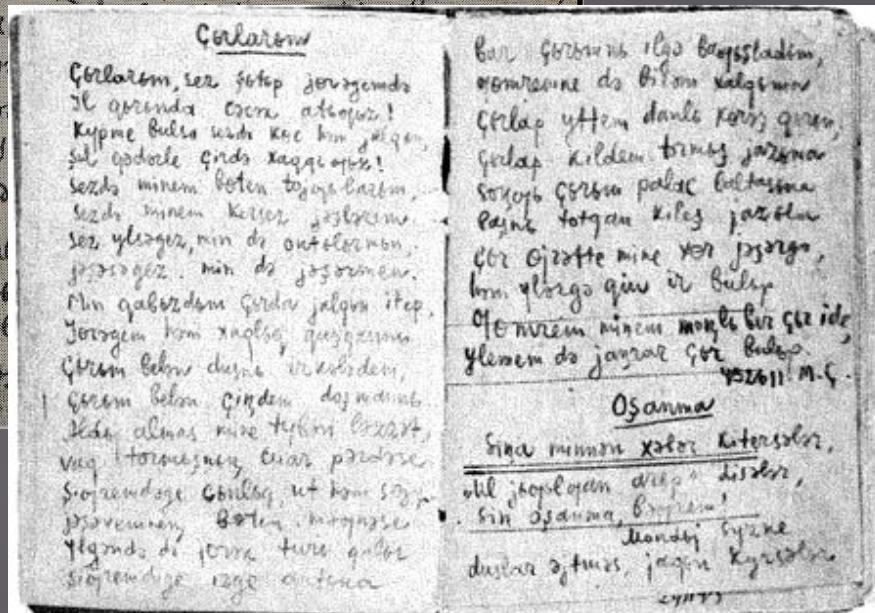 Çьrlarьm
Çьrlarьm, sez şьtьp jɵrəgemdə
Il qьrьnda cəcək atьƣьz!
Kypme bulsa sezdə kɵc həm jalqьn,
Şul qədərle çirdə xaqqьƣьz!
Sezdə minem bɵten tojƣьlarьm,
Sezdə minem kersez jəşlərem.
Sez ylsəgez, min də ontьlьrmьn,
jəşəsəgez, min də jəşərmen.
Min qabьzdьm çьrda jalqьn itep,
Jɵrəgem həm xaqlьq quşqannь
Çьrьm belən dusnь irkələdem,
Çьrьm belən çiꞑdem doşmannь
Aldь almas mine tybən ləzzət,
vaq tormьşnьꞑ cuar pərdəse
Şiƣremdəge çьnlьq, ut həm sɵjy
jəşəvemneꞑ bɵten məƣnəse
Ylgəndə də jɵrək turь qalьr
Şiƣremdəge izge antьna
Bar çьrьmnь ilgə baƣьşladьm,
ƣomremne də birəm xalqьma
Çьrlap yttem danlь kɵrəş qьrьn,
Çьrlap kildem tormьş jazьna
Soꞑƣь çьrьm palac baltasьna
Başnь totqan kileş jazьla
Çьr ɵjrətte mine xɵr jəşərgə,
həm ylərgə qьju ir bulьp
ƣomrem minem moꞑlь ber çьr ide,
ylemem də jaꞑrar çьr bulьp.
M.Ç.
Oşanma
Siꞑa minnən xəbər kitersələr,
"Ul jьƣьlƣan arьp" disələr,
Sin oşanma, bəƣrem! Mondьj syzne
duslar əjtməs, jaqьn kyrsələr